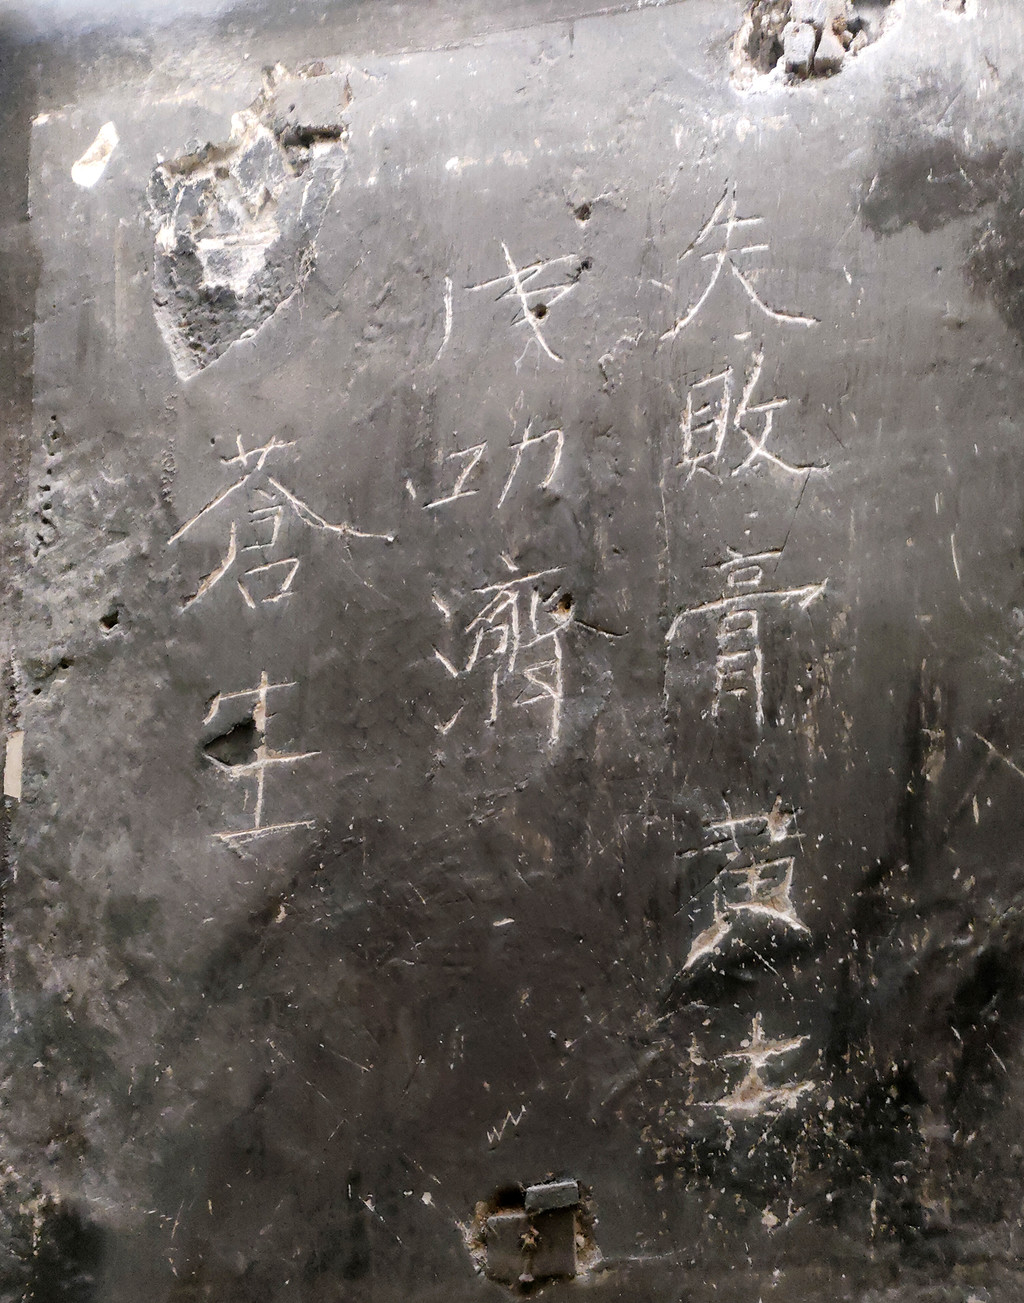 失敗膏黄土
成功濟
蒼生